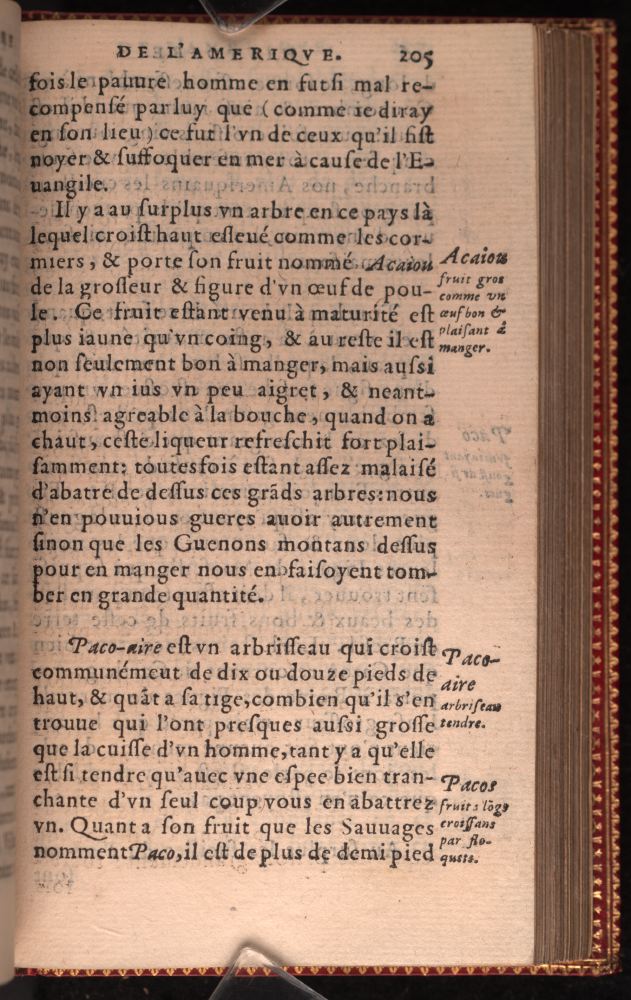 DE L'AMERIQVE. 205
fois le pauure homme en fut si mal re-
compensé par luy que (comme ie diray
en son lieu) ce fut l'vn de ceux qu'il fist
noyer & suffoquer en mer à cause de l'E-
uangile.
Il y a au surplus vn arbre en ce pays là
lequel croist haut esleué comme les cor-
miers, & porte son fruit nommé Acaiou
de la grosseur & figure d'vn œuf de pou-
le. Ce fruit estant venu à maturité est
plus iaune qu'vn coing, & au reste il est
non seulement bon à manger, mais aussi
ayant vn ius vn peu aigret, & neant-
moins agreable à la bouche, quand on a
chaut, ceste liqueur refreschit fort plai-
samment: toutesfois estant assez malaisé
d'abatre de dessus ces grãds arbres: nous
n'en pouuious gueres auoir autrement
sinon que les Guenons montans dessus
pour en manger nous en faisoyent tom-
ber en grande quantité.
Acaiou
fruit gros
comme vn
œuf bon &
plaisant à
manger.
Paco-aire est vn arbrisseau qui croist
communémeut de dix ou douze pieds de
haut, & quãt a sa tige, combien qu'il s'en
trouue qui l'ont presques aussi grosse
que la cuisse d'vn homme, tant y a qu'elle
est si tendre qu'auec vne espee bien tran-
chante d'vn seul coup vous en abattrez
vn. Quant a son fruit que les Sauuages
nomment Paco, il est de plus de demi pied
Paco-
aire
arbriseau
tendre.
Pacos
fruits lõgs
croissans
par flo-
quets.